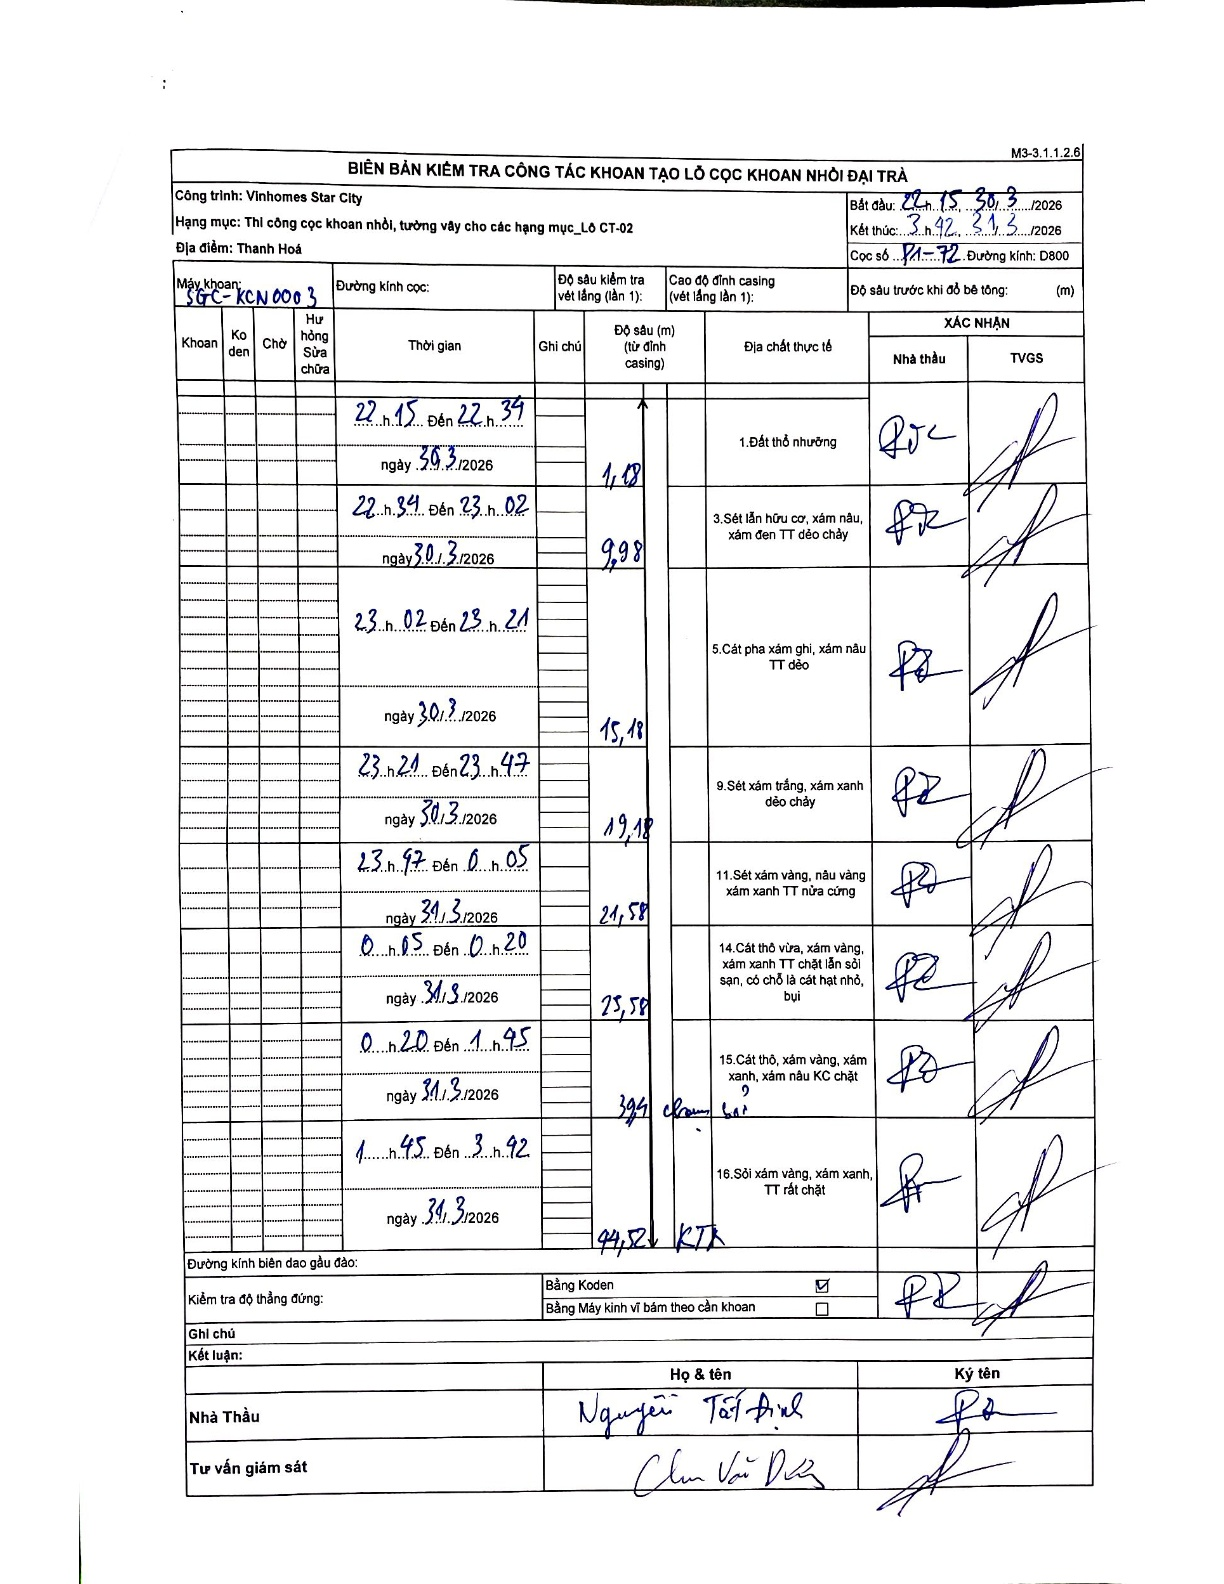 M3-3.1.1.2.6
BIÊN BẢN KIỂM TRA CÔNG TÁC KHOAN TẠO LỖ CỌC KHOAN NHỒI ĐẠI TRÀ
Công trình: Vinhomes Star City
Hạng mục: Thi công cọc khoan nhồi, tường vây cho các hạng mục_Lô CT-02
Địa điểm: Thanh Hoá
Bắt đầu: 22h 15, 30/3/2026
Kết thúc: 3h42, 31/3/2026
Cọc số P1-72 Đường kính: D800
Máy khoan: SGC-KCN0003
Đường kính cọc:
Độ sâu kiểm tra vét lắng (lần 1):
Cao độ đỉnh casing (vét lắng lần 1):
Độ sâu trước khi đổ bê tông: (m)
Khoan
Ko den
Chờ
Hư hỏng Sửa chữa
Thời gian
Ghi chú
Độ sâu (m) (từ đỉnh casing)
Địa chất thực tế
XÁC NHẬN
Nhà thầu
TVGS
22 h 15 Đến 22 h 34
ngày 30/3/2026
1,18
1.Đất thổ nhưỡng
22 h 34 Đến 23 h 02
ngày 30/3/2026
9,98
3.Sét lẫn hữu cơ, xám nâu, xám đen TT dẻo chảy
23 h 02 Đến 23 h 21
ngày 30/3/2026
15,18
5.Cát pha xám ghi, xám nâu TT dẻo
23 h 21 Đến 23 h 47
ngày 30/3/2026
19,18
9.Sét xám trắng, xám xanh dẻo chảy
23 h 47 Đến 0 h 05
ngày 31/3/2026
21,58
11.Sét xám vàng, nâu vàng xám xanh TT nửa cứng
0 h 05 Đến 0 h 20
ngày 31/3/2026
25,58
14.Cát thô vừa, xám vàng, xám xanh TT chặt lẫn sỏi sạn, có chỗ là cát hạt nhỏ, bụi
0 h 20 Đến 1 h 45
ngày 31/3/2026
39,4 chạm sỏi
15.Cát thô, xám vàng, xám xanh, xám nâu KC chặt
1 h 45 Đến 3 h 42
ngày 31/3/2026
44,52 KTK
16.Sỏi xám vàng, xám xanh, TT rất chặt
Đường kính biên dao gầu đào:
Kiểm tra độ thẳng đứng:
Bằng Koden ☑
Bằng Máy kinh vĩ bám theo cần khoan ☐
Ghi chú
Kết luận:
Họ & tên
Ký tên
Nhà Thầu
Nguyễn Tất Định
Tư vấn giám sát
Chu Văn